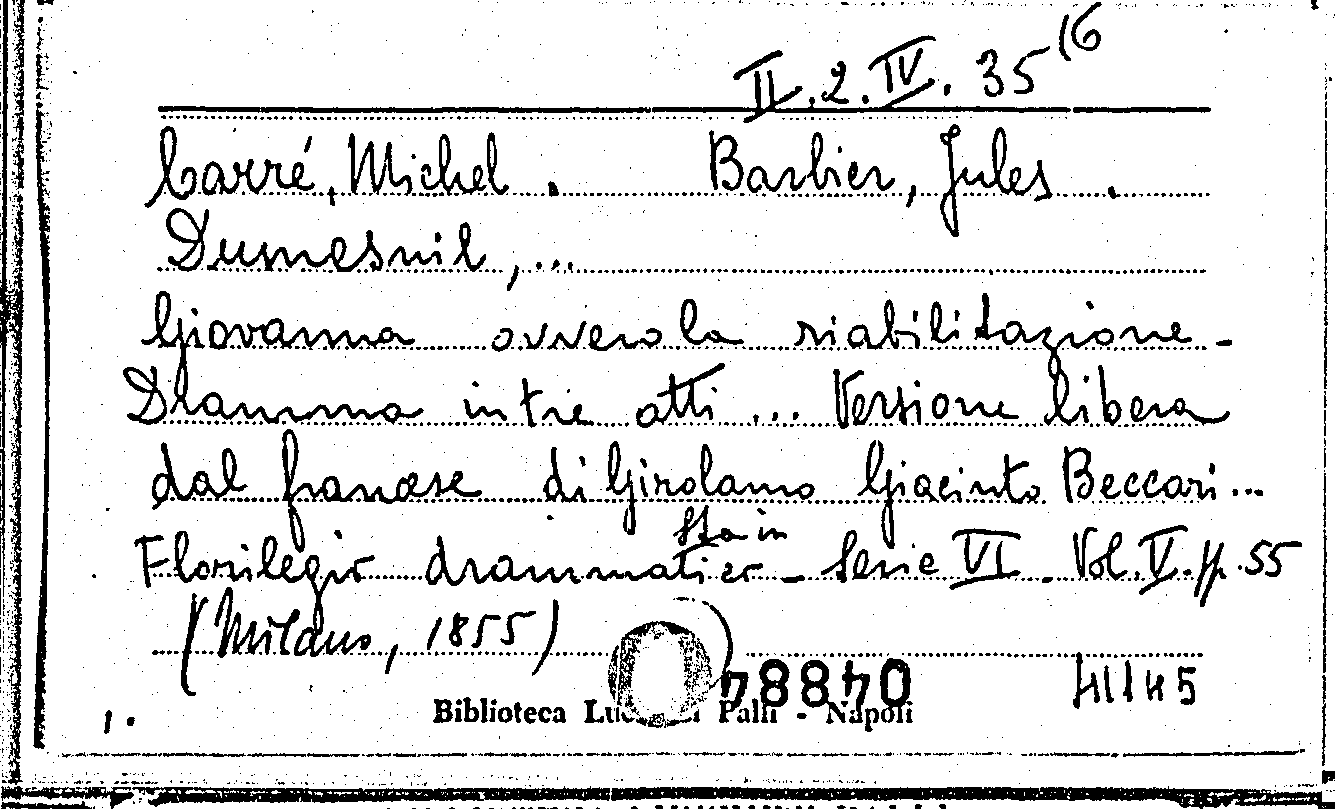 II.2.IV.35(6
Carré, Michel. Barbier, Jules.
Dumesnil, ...
Giovanna ovvero la riabilitazione -
Dramma in tre atti ... Versione libera
dal francese di Girolamo Giacinto Beccari ...
Sta in
Florilegio drammatico - Serie VI. Vol. V. pp. 55
(Milano, 1855)
04884
41145
Biblioteca Palli - Napoli
1.